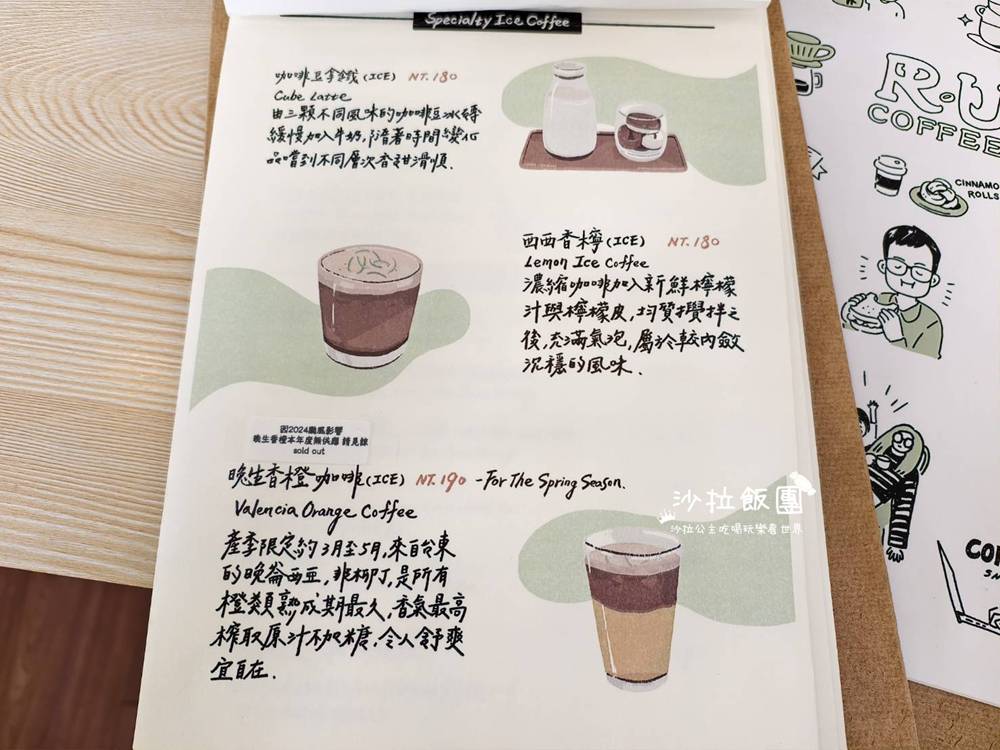 Specialty Ice Coffee
咖啡豆拿鐵(ICE) NT.180
Cube Latte
由三顆不同風味的咖啡豆冰磚
緩慢加入牛奶,隨著時間變化
品嚐到不同層次香甜滑順.
西西香檸(ICE) NT.180
Lemon Ice Coffee
濃縮咖啡加入新鮮檸檬
汁與檸檬皮,均質攪拌之
後,充滿氣泡,屬於較內斂
沉穩的風味.
因2024颱風影響
晚生香橙本年度無供應 請見諒
sold out
晚生香橙咖啡(ICE) NT.190 -For The Spring Season.
Valencia Orange Coffee
產季限定約3月至5月,來自台東
的晚崙西亞,非柳丁,是所有
橙類熟成期最久,香氣最高
榨取原汁不加糖,令人舒爽
宜自在.
沙拉飯團
沙拉公主吃喝玩樂看世界
R.U
COFFEE
CINNAMO
ROLLS